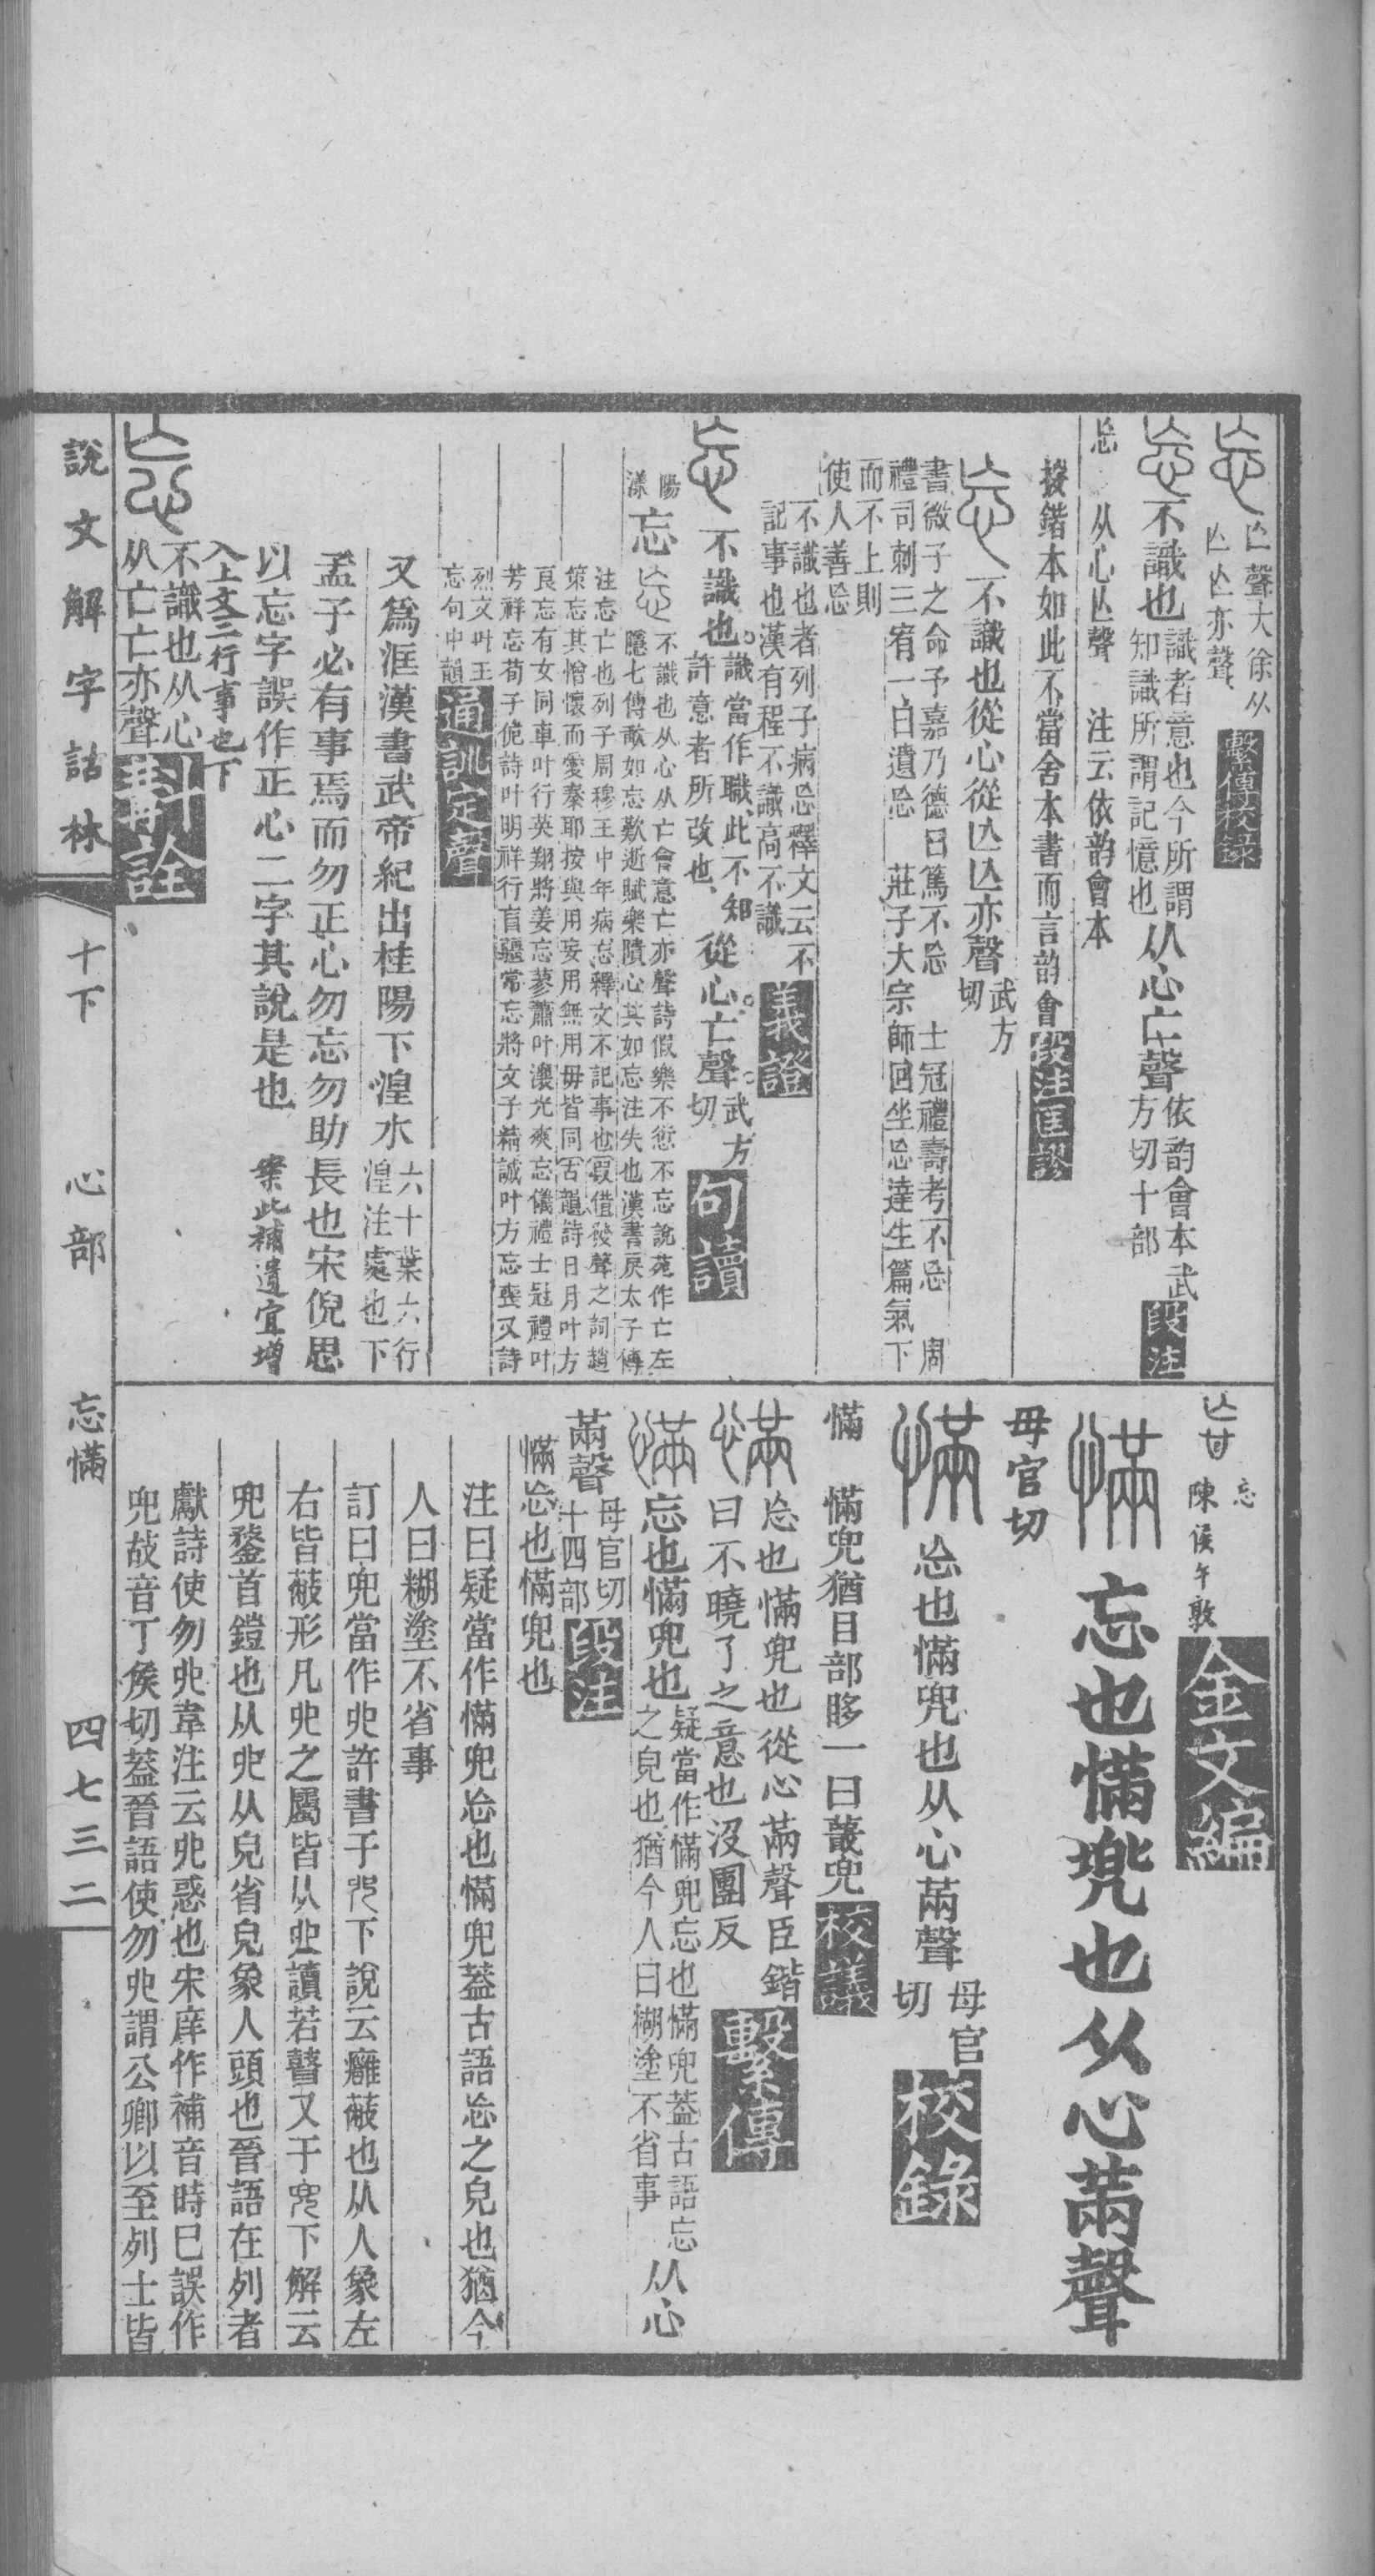 亾聲大徐从
亾亾亦聲
繫傳校錄
不識也
識者意也今所謂
知識所謂記憶也
从心亡聲
依韵會本武
方切十部
段注
忘 从心亾聲 注云依韵會本
按鍇本如此不當舍本書而言韵會
段注匡謬
不識也從心從亾亾亦聲
武方
切
書微子之命予嘉乃德曰篤不忘 士冠禮壽考不忘 周
禮司刺三宥一曰遺忘 莊子大宗師回坐忘達生篇氣下
而不上則
使人善忘
不識也者列子病忘釋文云不
記事也漢有程不識高不識
義證
不識也
識當作職此不知
許意者所改也
從心亡聲
武方
切
句讀
陽
漾
忘
不識也从心从亡會意亡亦聲詩假樂不愆不忘說苑作亡左
隱七傳歃如忘歎逝賦樂隤心其如忘注失也漢書戾太子傳
注忘亡也列子周穆王中年病忘釋文不記事也叚借發聲之詞趙
策忘其憎懷而愛秦耶按與用妄用無用毋皆同古韻詩日月叶方
良忘有女同車叶行英翔將姜忘蓼蕭叶瀼光爽忘儀禮士冠禮叶
芳祥忘荀子佹詩叶明祥行盲彊常忘將文子精誠叶方忘喪又詩
烈文叶王
忘句中韻
通訓定聲
又爲洭漢書武帝紀出桂陽下湟水
六十葉六行
湟注處也下
孟子必有事焉而勿正心勿忘勿助長也宋倪思
以忘字誤作正心二字其說是也
案此補遺宜增
入上文二行事也下
不識也从心
从亡亡亦聲
斠詮
忘
陳侯午敦
金文編
忘也慲兠也从心㒼聲
毋官切
忘也慲兜也从心㒼聲
母官
切
校錄
慲 慲兜猶目部眵一曰蔎兜
校議
忘也慲兜也從心㒼聲臣鍇
曰不曉了之意也沒團反
繫傳
忘也慲兜也
疑當作慲兜忘也慲兜蓋古語忘
之皃也猶今人曰糊塗不省事
从心
㒼聲
母官切
十四部
段注
慲忘也慲兜也
注曰疑當作慲兜忘也慲兜蓋古語忘之皃也猶今
人曰糊塗不省事
訂曰兜當作𠑹許書于𠑹下說云廱蔽也从人象左
右皆蔽形凡𠑹之屬皆从𠑹讀若瞽又于兜下解云
兜鍪首鎧也从𠑹从皃省皃象人頭也晉語在列者
獻詩使勿𠑹韋注云𠑹惑也宋庠作補音時巳誤作
兜故音丁侯切蓋晉語使勿𠑹謂公卿以至列士皆
說文解字詁林
十下
心部
忘慲
四七三二